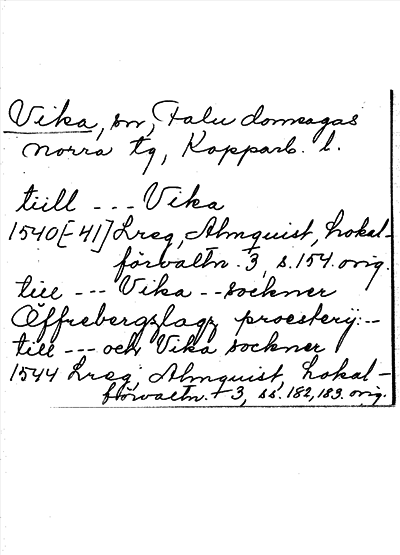 Vika, sn, Falu domsagas
norra tg, Kopparb. l.
tiill --- Vika
1540[-41] Lreg, Almquist, Lokal-
förvaltn. 3, s. 154. orig.
till --- Vika -- sockner
Öffrebergzlagz proesterij:--
till --- och Vika sockner
1544 Lreg, Almquist, Lokal-
förvaltn. 3, ss. 182, 183. orig.